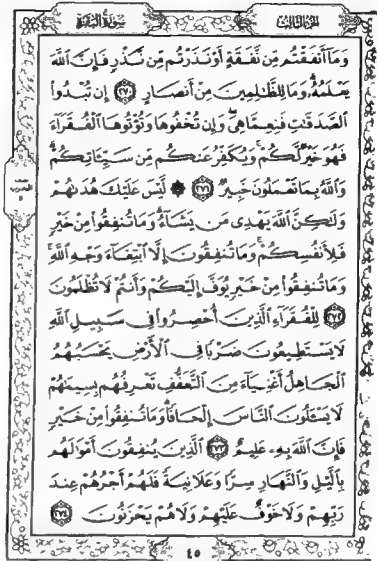 سُورَةُ البَقَرَةِ الجُزْءُ الثَّالِثُ
وَمَآ أَنفَقْتُم مِّن نَّفَقَةٍ أَوْ نَذَرْتُم مِّن نَّذْرٍ فَإِنَّ ٱللَّهَ
يَعْلَمُهُۥ وَمَا لِلظَّـٰلِمِينَ مِنْ أَنصَارٍ ٢٧٠ إِن تُبْدُوا۟
ٱلصَّدَقَـٰتِ فَنِعِمَّا هِىَ وَإِن تُخْفُوهَا وَتُؤْتُوهَا ٱلْفُقَرَآءَ
فَهُوَ خَيْرٌ لَّكُمْ وَيُكَفِّرُ عَنكُم مِّن سَيِّـَٔاتِكُمْ
وَٱللَّهُ بِمَا تَعْمَلُونَ خَبِيرٌ ٢٧١ ۞ لَّيْسَ عَلَيْكَ هُدَىٰهُمْ
وَلَـٰكِنَّ ٱللَّهَ يَهْدِى مَن يَشَآءُ وَمَا تُنفِقُوا۟ مِنْ خَيْرٍ
فَلِأَنفُسِكُمْ وَمَا تُنفِقُونَ إِلَّا ٱبْتِغَآءَ وَجْهِ ٱللَّهِ
وَمَا تُنفِقُوا۟ مِنْ خَيْرٍ يُوَفَّ إِلَيْكُمْ وَأَنتُمْ لَا تُظْلَمُونَ
٢٧٢ لِلْفُقَرَآءِ ٱلَّذِينَ أُحْصِرُوا۟ فِى سَبِيلِ ٱللَّهِ
لَا يَسْتَطِيعُونَ ضَرْبًا فِى ٱلْأَرْضِ يَحْسَبُهُمُ
ٱلْجَاهِلُ أَغْنِيَآءَ مِنَ ٱلتَّعَفُّفِ تَعْرِفُهُم بِسِيمَـٰهُمْ
لَا يَسْـَٔلُونَ ٱلنَّاسَ إِلْحَافًا وَمَا تُنفِقُوا۟ مِنْ خَيْرٍ
فَإِنَّ ٱللَّهَ بِهِۦ عَلِيمٌ ٢٧٣ ٱلَّذِينَ يُنفِقُونَ أَمْوَٰلَهُم
بِٱلَّيْلِ وَٱلنَّهَارِ سِرًّا وَعَلَانِيَةً فَلَهُمْ أَجْرُهُمْ عِندَ
رَبِّهِمْ وَلَا خَوْفٌ عَلَيْهِمْ وَلَا هُمْ يَحْزَنُونَ ٢٧٤
٤٥